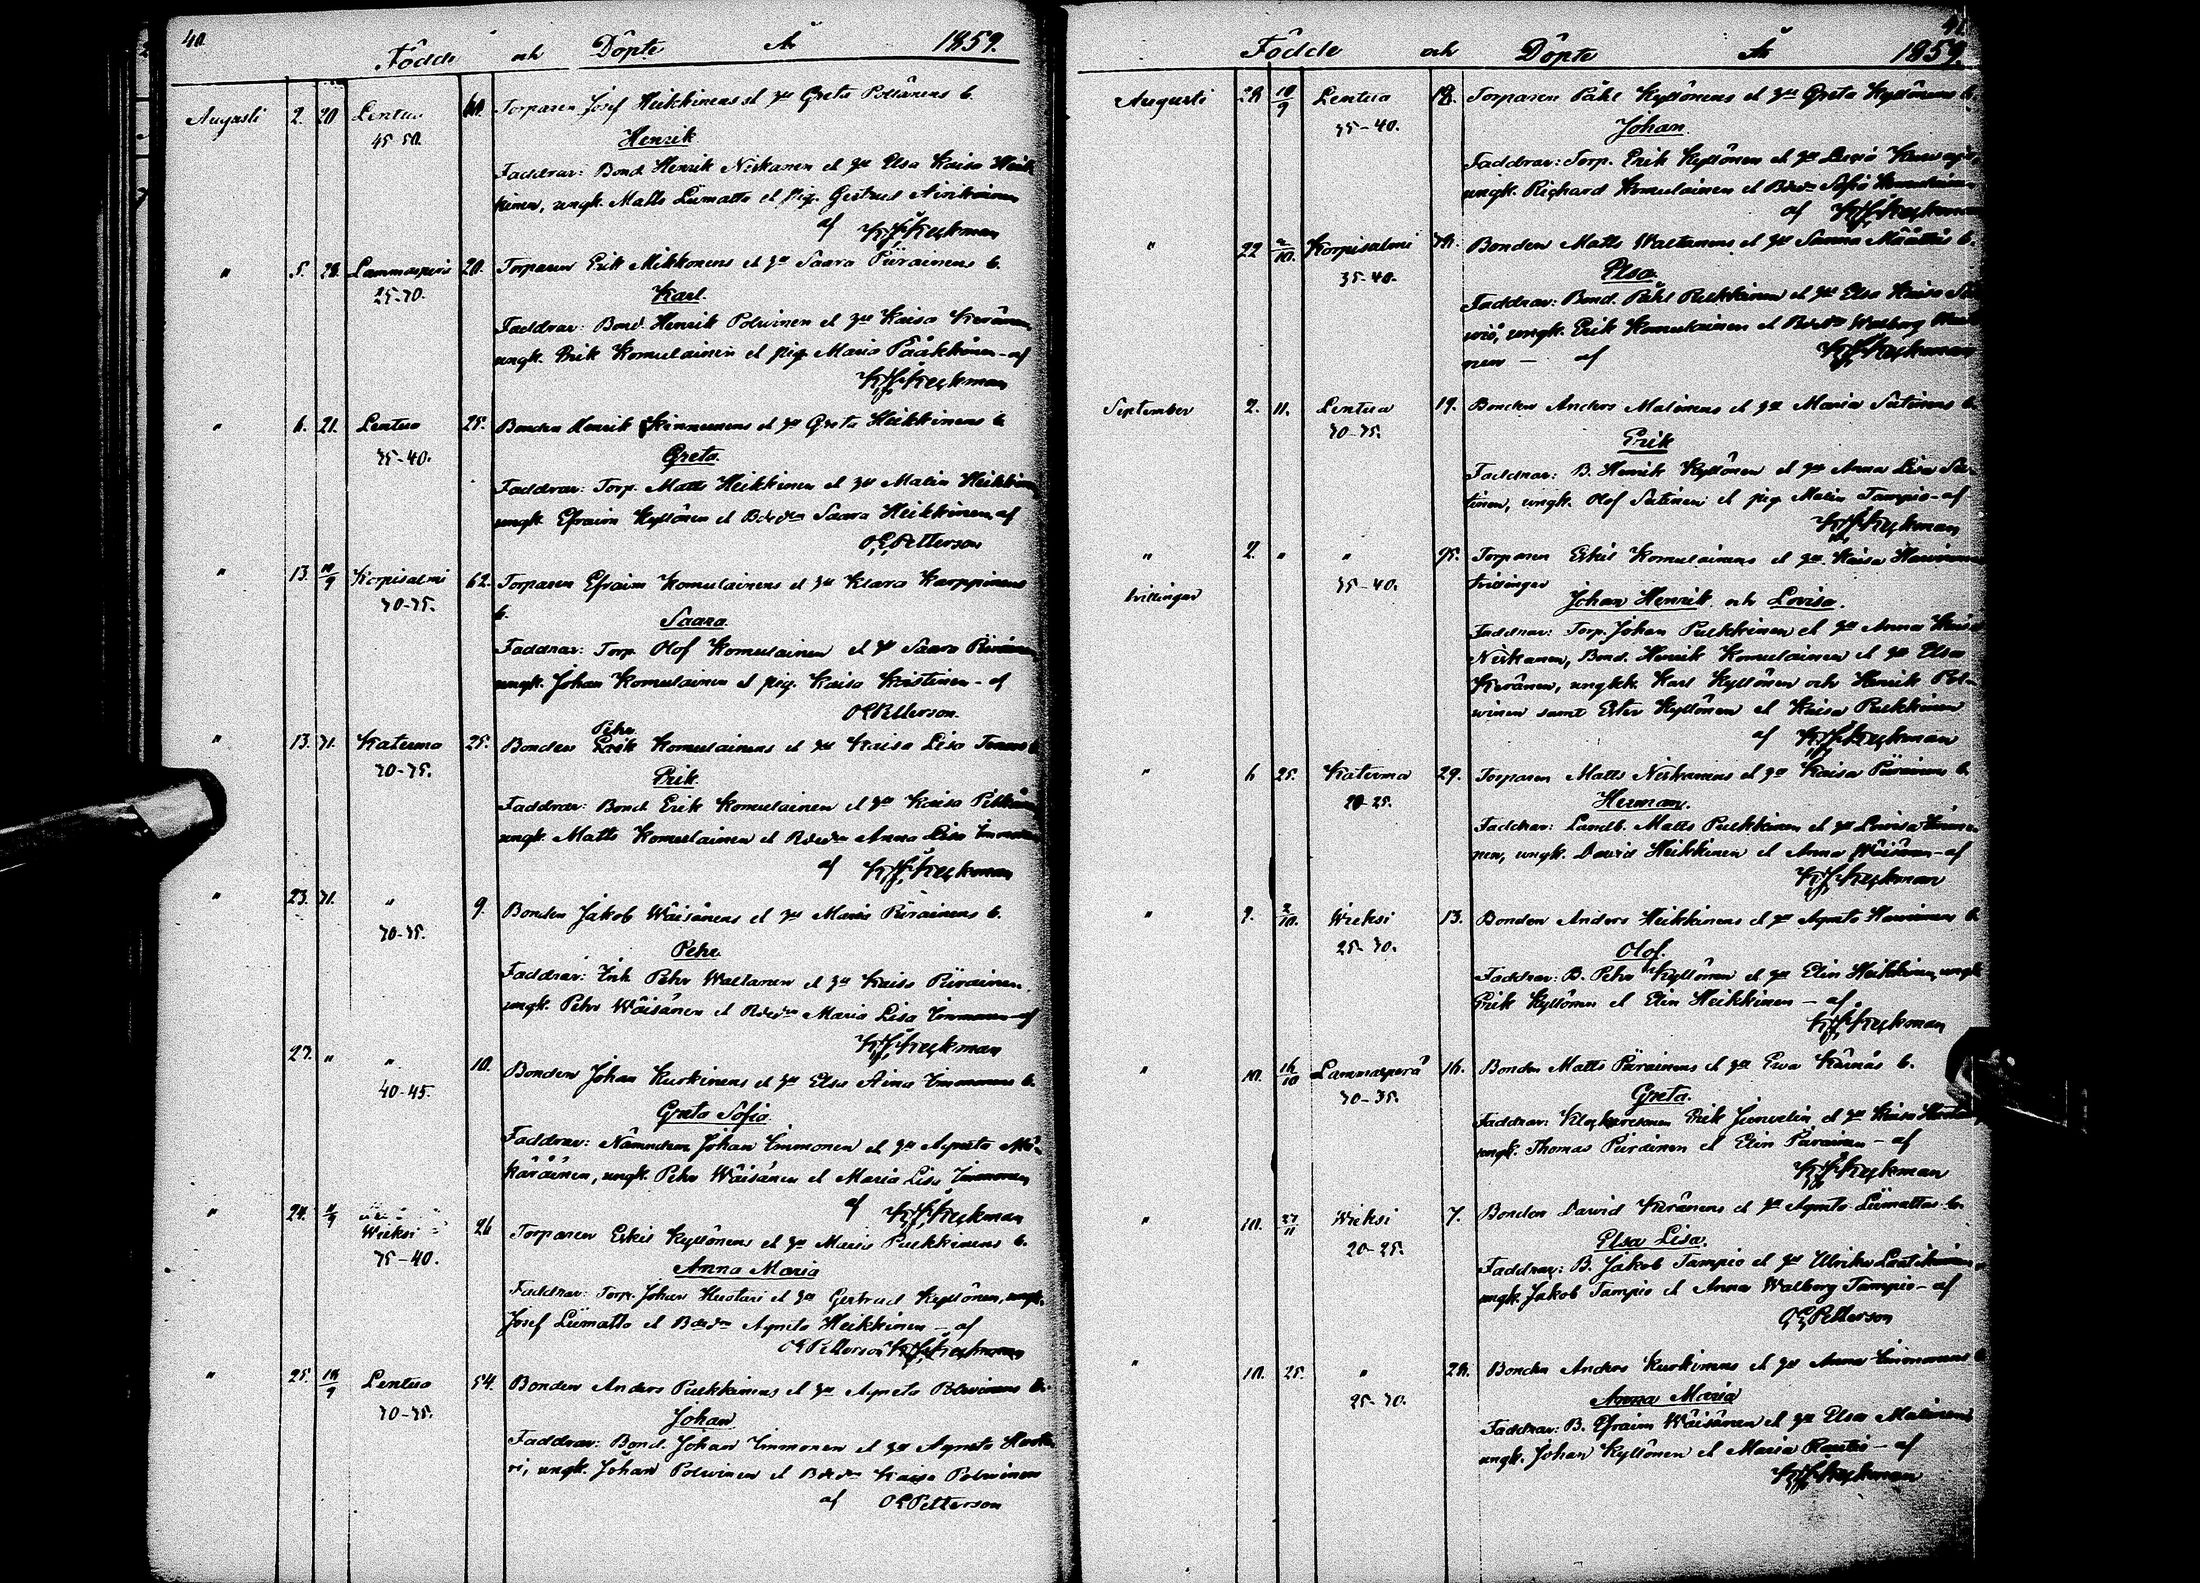 40.
Födde och Döpte År 1859.
Augusti 2. 20 Lentua 60. Torparen Josef Heikkinens et hu Greta Poltänens b.
45-50.
Henrik
Faddrar: Bond. Henrik Niskanen et hu Elsa Kaisa Heik-
kinen, ungk. Matts Liimatta et pig. Gertrud
af K.J. Keckman
" 5. 28. Lammasperä 20. Torparen Erik Mikkonens et hu Saara Piirainens b.
25-30.
Karl.
Faddrar: Bond. Henrik Polvinen et hu Kaisa Keränen
ungk. Erik Komulainen et pig. Maria Pääkkönen - af
K.J. Keckman
" 6. 21. Lentua 25. Bonden Henrik Kinnunens et hu Greta Heikkinens b.
35-40.
Greta.
Faddrar: Torp. Matts Heikkinen et hu Malin Heikkinen
ungk. Efraim Kyllönen et Bdedr Saara Heikkinen, af
O.E. Petterson
" 13. Korpisalmi 62. Torparen Efraim Komulainens et hu Klara Karppinens
30-35.
b.
Saara.
Faddrar: Torp. Olof Komulainen et hu Saara
ungk. Johan Komulainen et pig. Kaisa Kristinen - af
O E Petterson.
Pehr
" 13. 31. Katerma 25. Bonden Erik Komulainens et hu Kaisa Lisa b.
30-35.
Erik.
Faddrar: Bond. Erik Komulainen et hu Kaisa
ungk. Matts Komulainen et Bdedr Anna Lisa Immonen
af K.J. Keckman
" 23. 31. " 9. Bonden Jakob Wäisänens et hu Maria Piirainens b.
30-35.
Pehr.
Faddrar: Inh. Pehr Waltanen et hu Kaisa Piirainen.
ungk. Pehr Wäisänen et Bdedr Maria Lisa Immonen - af
K.J. Keckman
27. " " 10. Bonden Johan Kurkinens et hu Elsa Stina Immonens b.
40-45.
Greta Sofia.
Faddrar: Nämndem Johan Immonen et hu Agneta Mä-
käräinen, ungk. Pehr Wäisänen et Maria Lisa Immonen
af K.J. Keckman
" 24. Wieksi 26 Torparen Eskil Kyllönens et hu Maria Pulkkinens b.
35-40.
Anna Maria
Faddrar: Torp. Johan Huotari et hu Gertrud Kyllönen, ungk.
Josef Liimatta et Bdedr Agneta Heikkinen - af
O E Petterson K.J. Keckman
" 25. 18/9 Lentua 54. Bonden Anders Pulkkinens et hu Agneta Polvinens b.
30-35.
Johan
Faddrar: Bond. Johan Immonen et hu Agneta Huota-
ri, ungk. Johan Polvinen et Bdedr Kaisa Polvinen
af O E Petterson
41
Födde och Döpte År 1859.
Augusti 28 18/9 Lentua 18. Torparen Påhl Kyllönens et hu Greta Kyllönens b.
35-40.
Johan.
Faddrar: Torp. Erik Kyllönen et hu Lovisa
ungk. Richard Komulainen et Bdedr Sofia Komulainen
af K.J. Keckman
" 22 2/10. Korpisalmi Bonden Matts Waltanens et hu Sanna Määttäs b.
35-40.
Elsa.
Faddrar: Bond. Påhl Pulkkinen et hu Elsa Kaisa
ungk. Erik Komulainen et Bdedr Walborg
nen - af K.J. Keckman
September 2. 11. Lentua 19. Bonden Anders Malinens et hu Maria Sutinens b.
30-35.
Erik
Faddrar: B. Henrik Kyllönen et hu Anna Lisa Su-
tinen, ungk. Olof Sutinen et pig. Malin Tampio - af
K.J. Keckman
" 2. " " 35. Torparen Eskil Komulainens et hu Kaisa
tvillingar 35-40. tvillingar
Johan Henrik och Lovisa.
Faddrar: Torp. Johan Pulkkinen et hu Anna Kaisa
Niskanen, Bond. Henrik Komulainen et hu Elsa
Keränen, ungkk. Karl Kyllönen och Henrik Pol-
vinen samt Ester Kyllönen et Kaisa Pulkkinen
af K.J. Keckman
" 6 25. Katerma 29. Torparen Matts Niskanens et hu Kaisa Piirainens b.
20-25.
Herman.
Faddrar: Landb. Matts Pulkkinen et hu Lovisa Immo-
nen, ungk. David Heikkinen et Anna Wäisänen - af
K.J. Keckman
" 9. 2/10. Wieksi 13. Bonden Anders Heikkinens et hu Agneta b.
25-30.
Olof.
Faddrar: B. Pehr Kyllönen et hu Elin Heikkinen, ungk.
Erik Kyllönen et Elin Heikkinen - af
K.J. Keckman
" 10. 16/10 Lammasperä 16. Bonden Matts Piirainens et hu Ewa Kärnäs b.
30-35.
Greta.
Faddrar: Klockaresonen Erik et hu Kaisa
ungk. Thomas Piirainen et Elin Piirainen - af
K.J. Keckman
" 10. 27/11 Wieksi 7. Bonden David Keränens et hu Agneta Liimattas b.
20-25.
Elsa Lisa.
Faddrar: B. Jakob Tampio et hu Ulrika Laatikainen
ungk. Jakob Tampio et Anna Walborg Tampio - af
O E Petterson
" 10. 25. " 28. Bonden Anders Kurkinens et hu Anna Immonens b.
25-30.
Anna Maria
Faddrar: B. Efraim Wäisänen et hu Elsa Malinen
ungk. Johan Kyllönen et Maria Rautio - af
K.J. Keckman